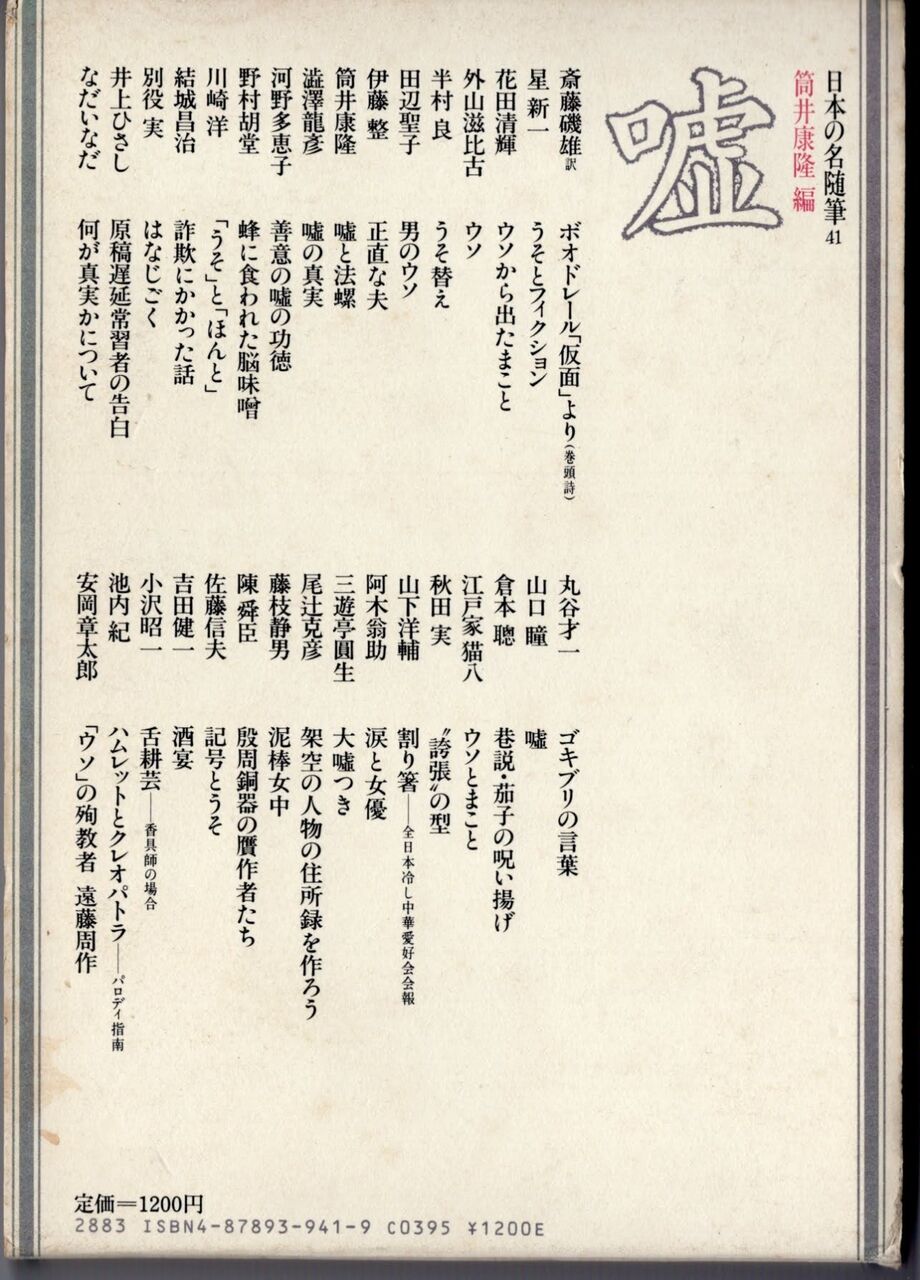 日本の名随筆41
筒井康隆 編
嘘
斎藤磯雄訳 ボオドレール「仮面」より(巻頭詩)
星 新一 うそとフィクション
花田清輝 ウソから出たまこと
外山滋比古 ウソ
半村 良 うそ替え
田辺聖子 男のウソ
伊藤 整 正直な夫
筒井康隆 嘘と法螺
澁澤龍彦 嘘の真実
河野多恵子 善意の嘘の功徳
野村胡堂 蜂に食われた脳味噌
川崎 洋 「うそ」と「ほんと」
結城昌治 詐欺にかかった話
別役 実 はなじごく
井上ひさし 原稿遅延常習者の告白
なだいなだ 何が真実かについて
丸谷才一 ゴキブリの言葉
山口 瞳 嘘
倉本 聰 巷説・茄子の呪い揚げ
江戸家猫八 ウソとまこと
秋田 実 〝誇張〟の型
山下洋輔 割り箸――全日本冷し中華愛好会会報
阿木翁助 涙と女優
三遊亭圓生 大嘘つき
尾辻克彦 架空の人物の住所録を作ろう
藤枝静男 泥棒女中
陳 舜臣 殷周銅器の贋作者たち
佐藤信夫 記号とうそ
吉田健一 酒宴
小沢昭一 舌耕芸――香具師の場合
池内 紀 ハムレットとクレオパトラ――パロディ指南
安岡章太郎 「ウソ」の殉教者 遠藤周作
定価=1200円
2883 ISBN4-87893-941-9 C0395 ¥1200E